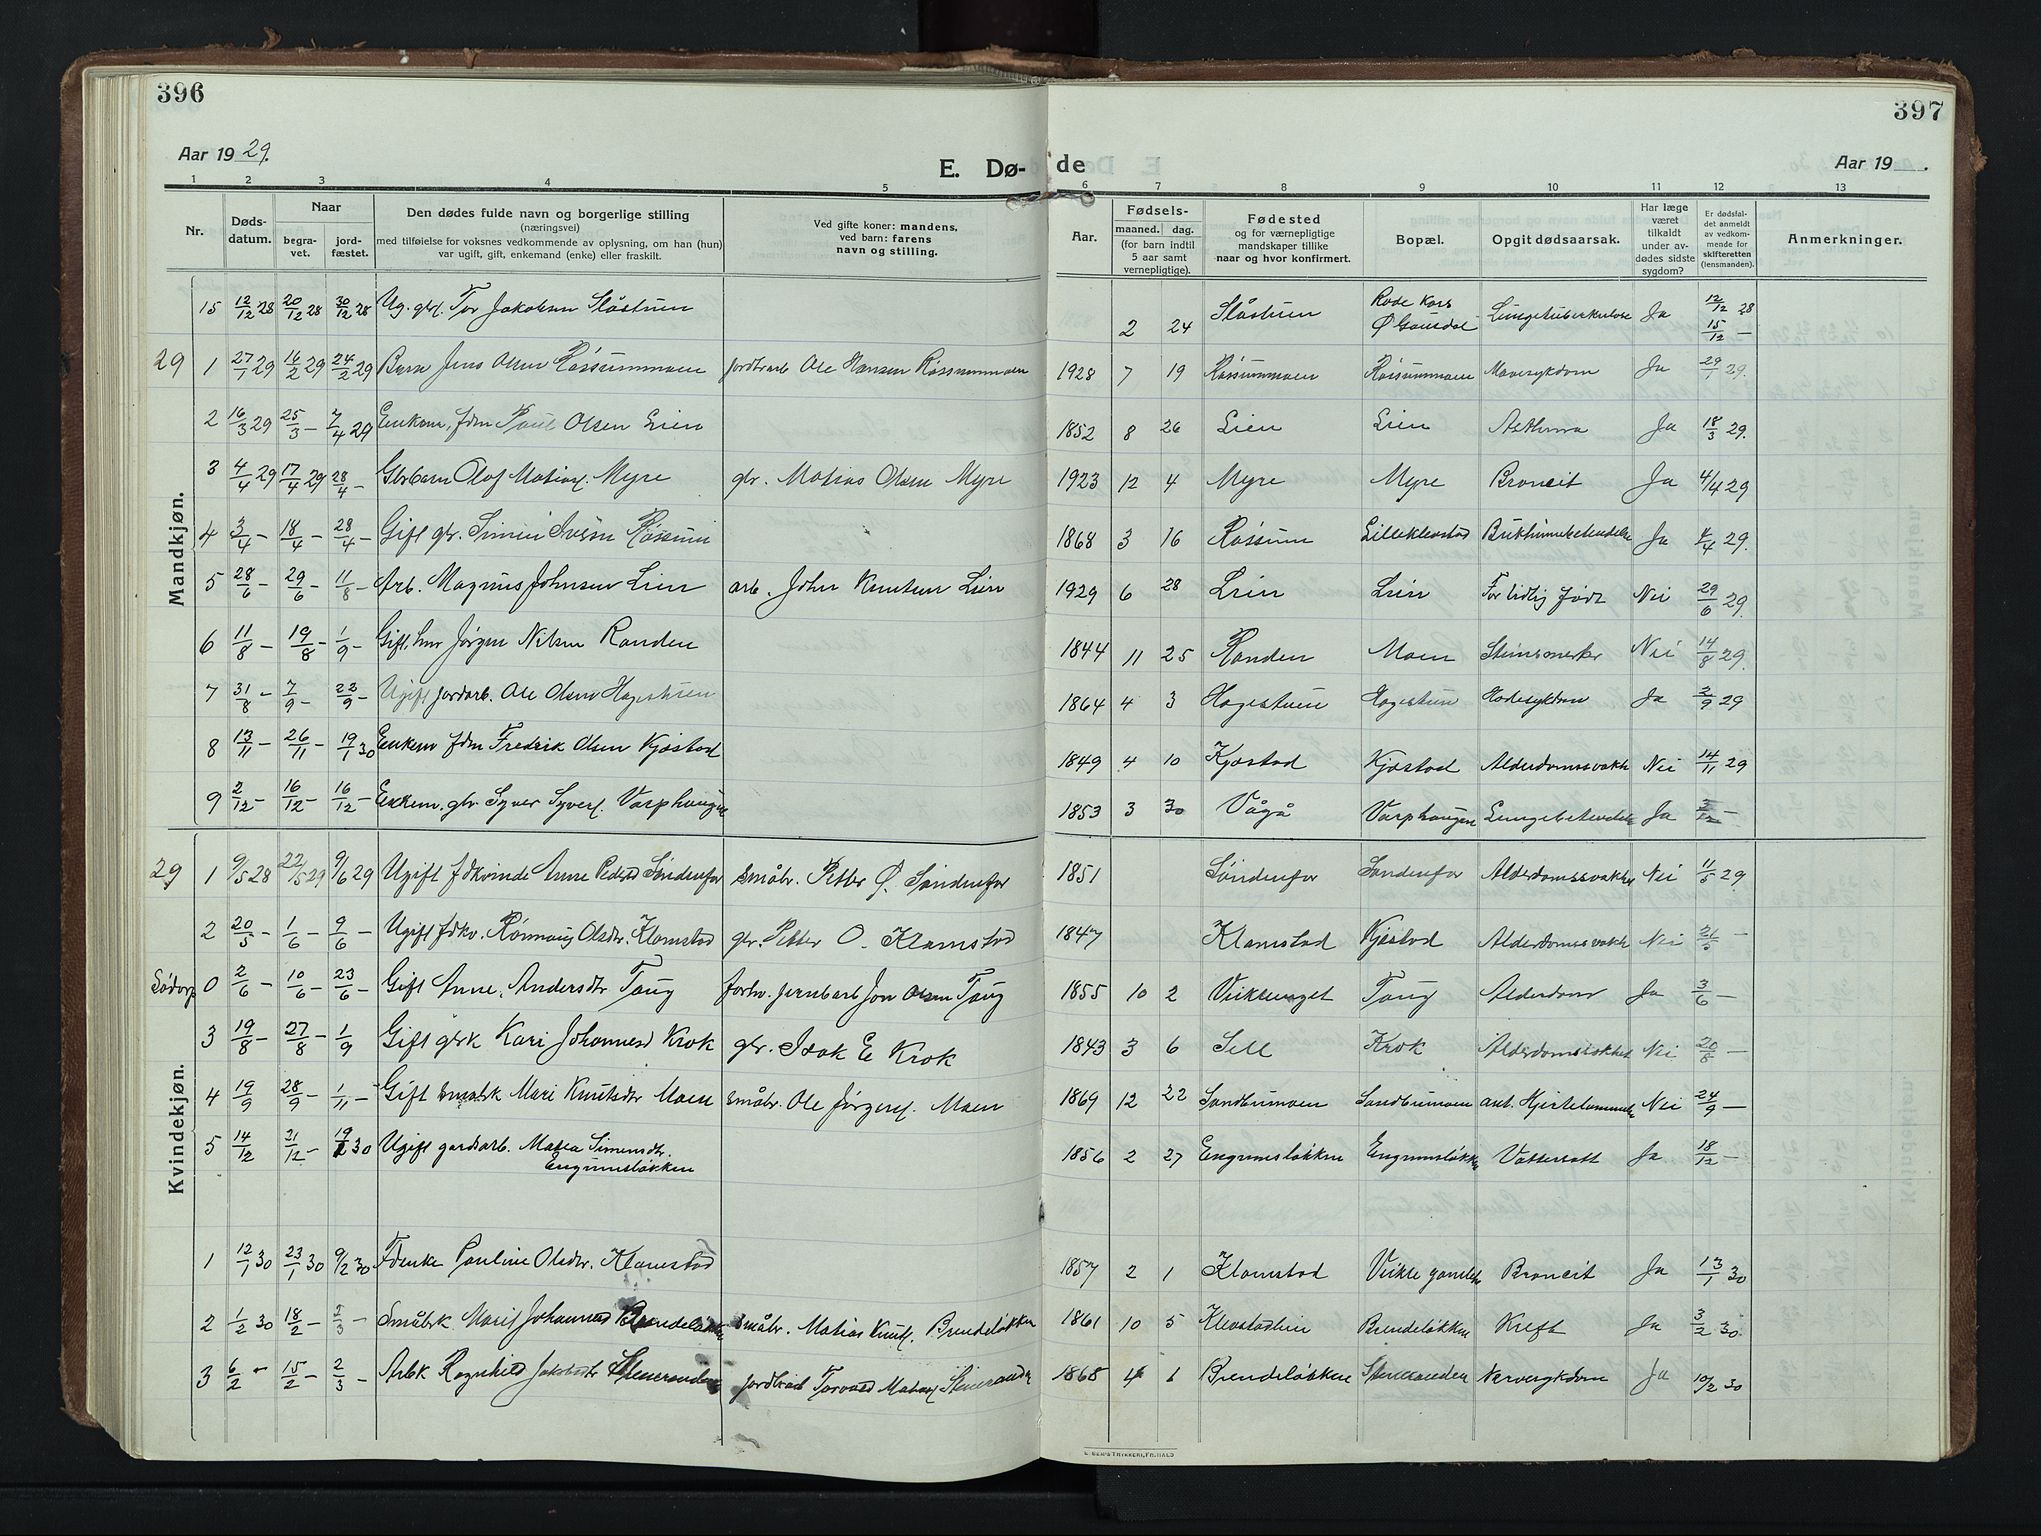 396
397
Aar 19 29.
E. Dø-
de
Aar 19 .
1 2 3 4 5 6 7 8 9 10 11 12 13
Nr.
Døds-
datum.
Naar
begra-
vet.
jord-
fæstet.
Den dødes fulde navn og borgerlige stilling
(næringsvei)
med tilføielse for voksnes vedkommende av oplysning, om han (hun)
var ugift, gift, enkemand (enke) eller fraskilt.
Ved gifte koner: mandens,
ved barn: farens
navn og stilling.
Aar.
Fødsels-
maaned. dag.
(for barn indtil
5 aar samt
vernepligtige).
Fødested
og for værnepligtige
mandskaper tillike
naar og hvor konfirmert.
Bopæl.
Opgit dødsaarsak.
Har læge
været
tilkaldt
under av-
dødes sidste
sygdom?
Er dødsfal-
det anmeldt
av vedkom-
mende for
skifteretten
(lensmanden).
Anmerkninger.
Mandkjøn.
15 12/12 28 20/12 28 30/12 28 Ug. gbr. Tor Jakobsen Slåstuen 2 24 Slåstuen Røde Kors Ø Gausdal Lungetuberkulose Ja 12/12 28 15/12 –
29 1 27/1 29 16/2 29 24/2 29 Barn Jens Olsen Røssummoen jordbrarb Ole Hansen Røssummoen 1928 7 19 Røssummoen Røssummoen Mavesykdom Ja 29/1 29.
2 16/3 29 25/3 – 7/4 29 Enkem. fdm Paul Olsen Lien 1852 8 26 Lien Lien Asthma Ja 18/3 29.
3 4/4 29 17/4 29 28/4 – Gbrbarn Olof Matias. Myre gbr. Matias Olsen Myre 1923 12 4 Myre Myre Broncit Ja 4/4 29
4 3/4 – 18/4 – 28/4 – Gift gbr. Simen Iversn Røssum 1868 3 16 Røssum Lilleklevstad Bukhinnebetendelse Ja 4/4 29.
5 28/6 – 29/6 – 11/8 – Arb. Magnus Johnsen Lien arb. John Knutsen Lien 1929 6 28 Lien Lien For tidlig født Nei 29/6 29.
6 11/8 – 19/8 – 1/9 – Gift. Jørgen Nilsen Randen 1844 11 25 Randen Moen Stensmerter Nei 14/8 29.
7 31/8 – 7/9 – 22/9 – Ugift jordarb. Ole Olsen Hagestuen 1864 4 3 Hagestuen Hagestuen Hodesykdom Ja 2/9 29
8 13/11 – 26/11 – 19/1 30 Enkem fdm Fredrik Olsen Kjøstad 1849 4 10 Kjøstad Kjøstad Alderdomssvakh Nei 14/11 29
9 2/12 – 16/12 – 16/12 – Enkem. gbr. Syver Syvers. Varphaugen 1853 3 30 Vågå Varphaugen Lungebetendelse Ja 3/12 –
Kvindekjøn.
29 1 9/5 28 22/5 29 9/6 29 Ugift fdkvinde Anne Pedersd Søndenfor småbr. Petter Ø. Søndenfor 1851 Søndenfor Søndenfor Alderdomssvakhet Nei 11/5 29
2 20/5 – 1/6 – 9/6 – Ugift fdkv. Rønnaug Olsdr. Klomstad gbr. Petter O. Klomstad 1847 Klomstad Kjøstad Alderdomssvakh Nei 21/5 –
Sødorp 0 2/6 – 10/6 – 23/6 – Gift Anne Andersdtr Taug forhv. jernbarb Jon Olsen Taug 1855 10 2 Taug Alderdom Ja 3/6 –
3 19/8 – 27/8 – 1/9 Gift gbrk Kari Johannesd Krok gbr. Isak E Krok 1843 3 6 Sell Krok Alderdomssvakhet Nei 20/8 –
4 19/9 28/9 – 1/11 – Gift småbk Mari Knutsdtr Moen småbr. Ole Jørgens. Moen 1869 12 22 Sandbumoen Sandbumoen ant. Hjertelammelse Nei 24/9 –
5 14/12 21/12 – 19/1 30 Ugift gardsarb. Matea Simensdr.
Engumsløkken 1856 2 27 Engumsløkken Engumsløkken Vattersott Ja 18/12 –
1 12/1 30 23/1 30 9/2 30 Fdenke Pauline Olsdr. Klomstad 1857 2 1 Klomstad Broncit Ja 13/1 30
2 1/2 30 18/2 – 2/3 – Småbk Marit Johannesd Brendeløkken småbr. Matias Knuts. Brendeløkken 1861 10 5 Klevstadlien Brendeløkken Kreft Ja 3/2 30.
3 6/2 – 15/2 – 2/3 – Arbk Ragnhild Jakobsdtr Stenersanden jordbrarb Torvald Matias. Stenersanden 1868 4 1 Brendeløkken Stenersanden Nervesykdom Ja 10/2 30
E. BERG'S TRYKKERI, FR.HALD